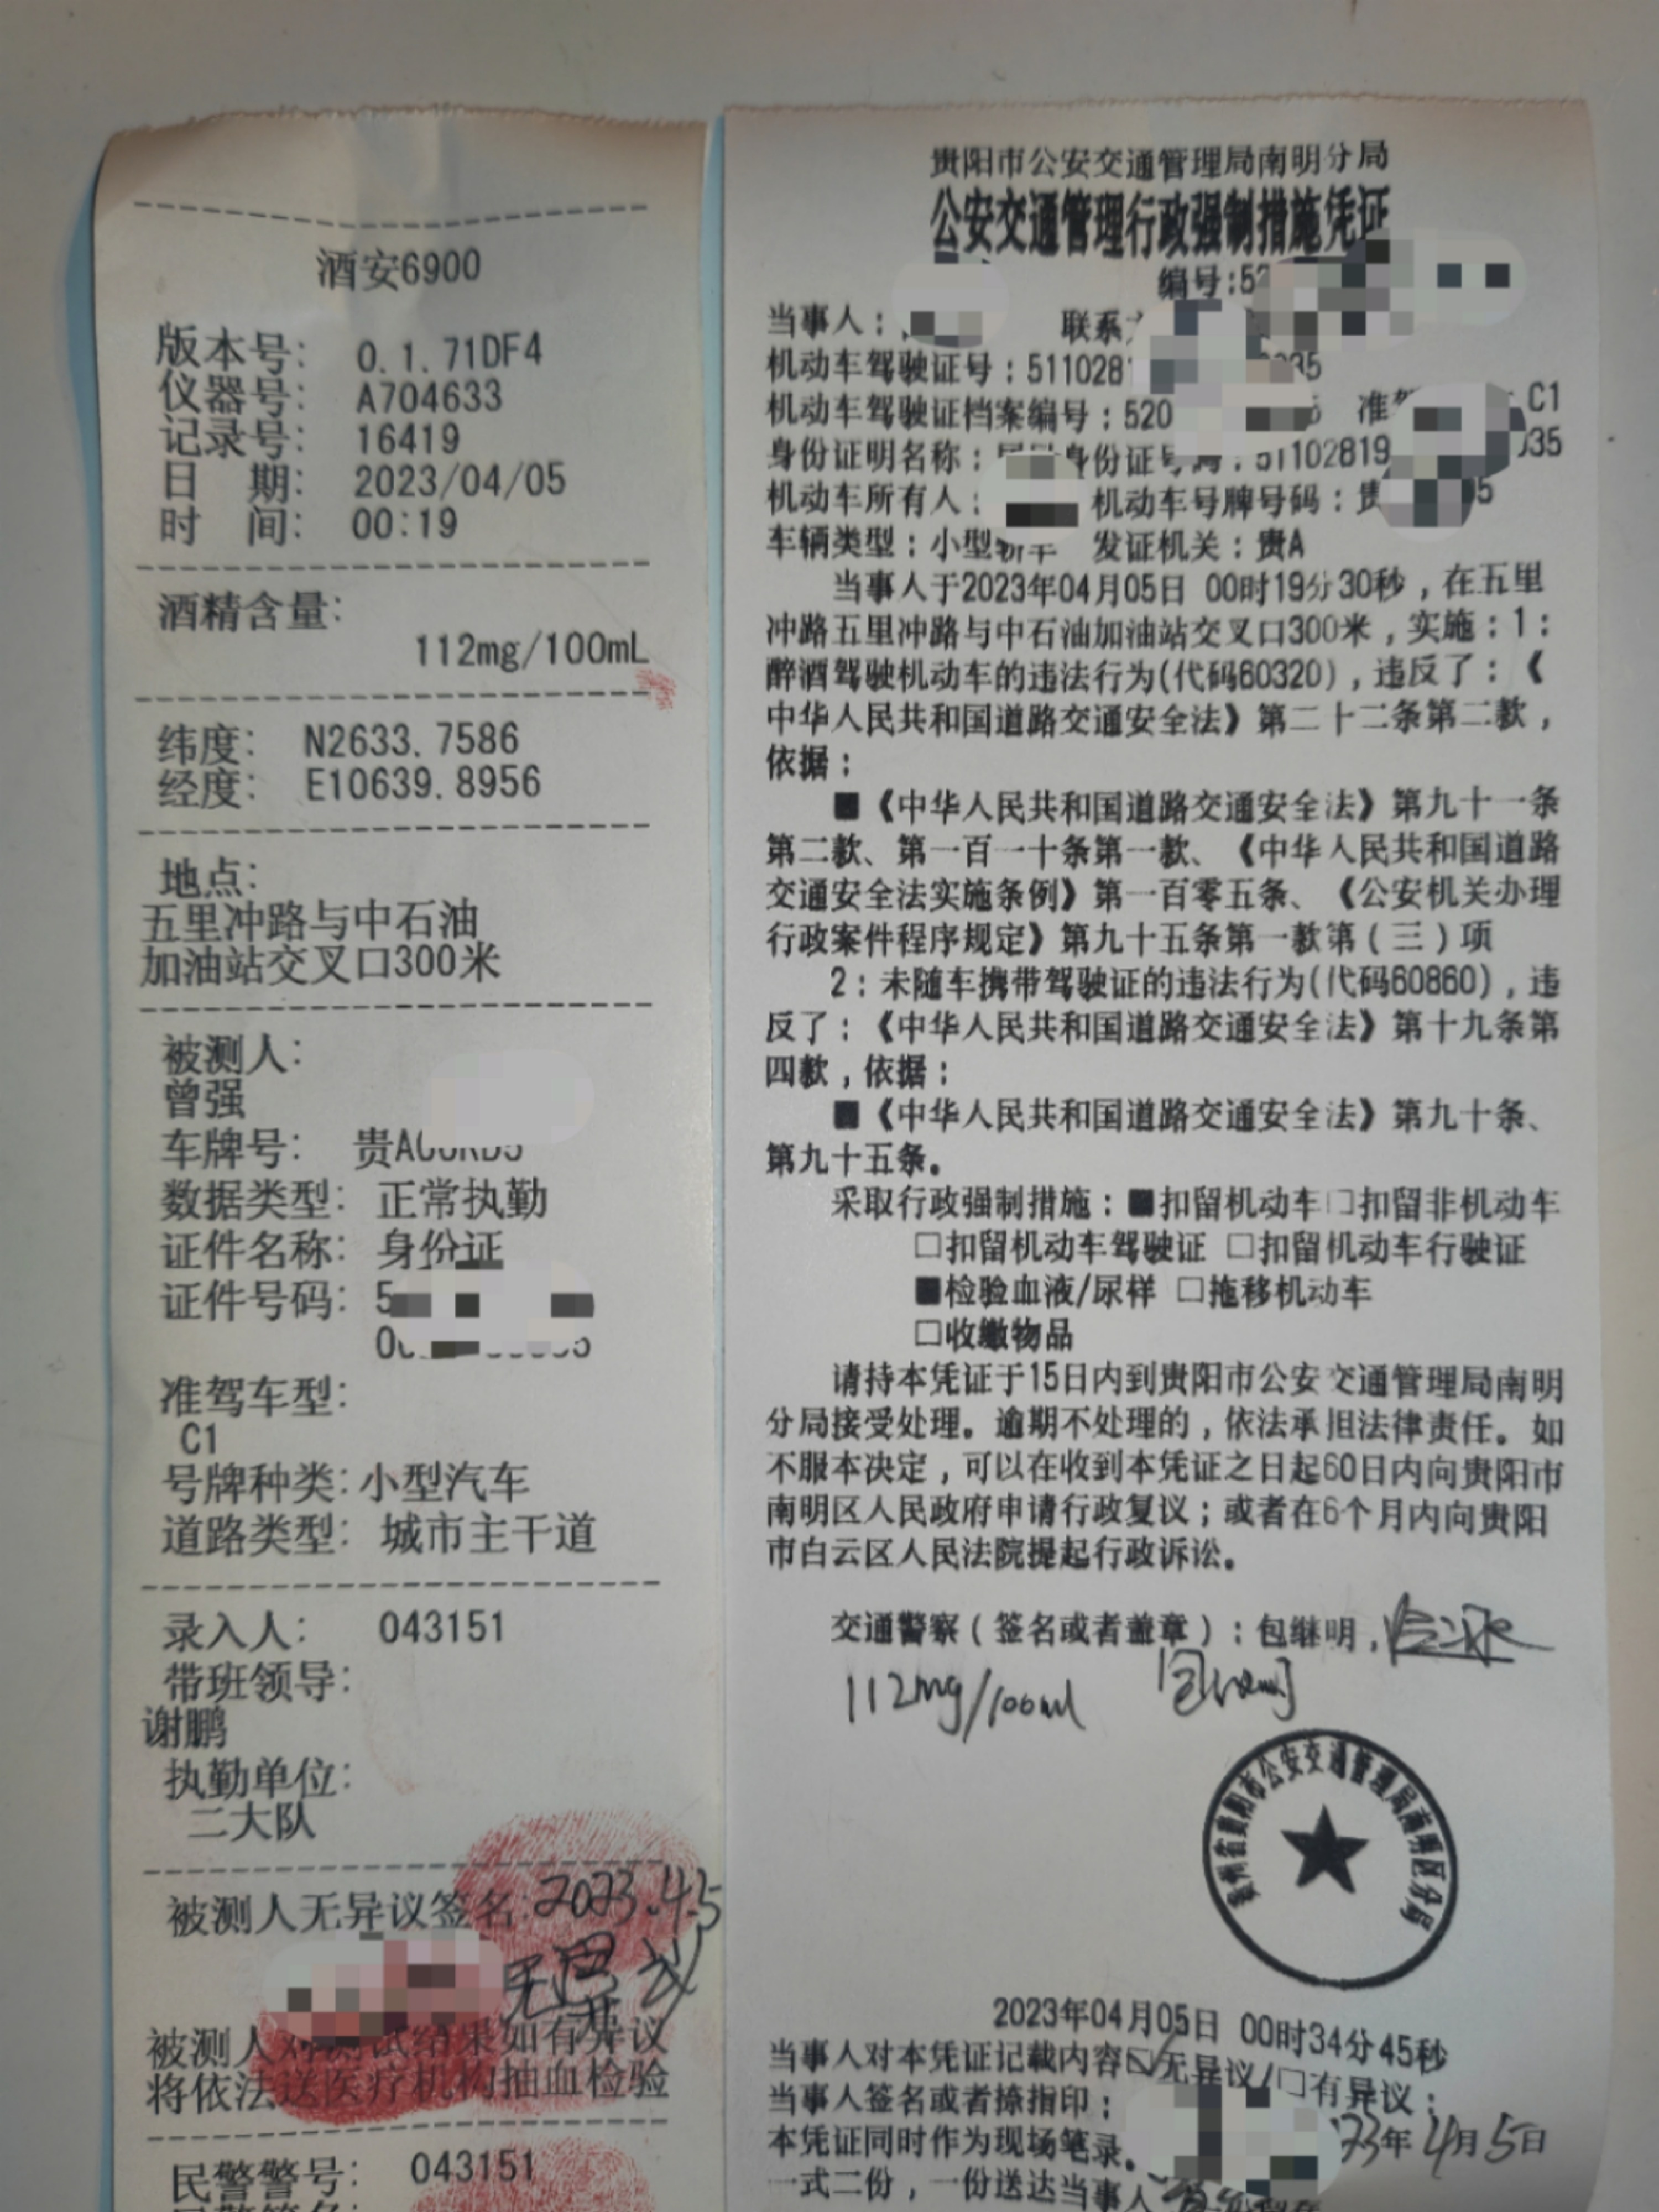 酒安6900
版本号: 0.1.71DF4
仪器号: A704633
记录号: 16419
日 期: 2023/04/05
时 间: 00:19
酒精含量:
112mg/100mL
纬度: N2633.7586
经度: E10639.8956
地点:
五里冲路与中石油
加油站交叉口300米
被测人:
曾强
车牌号: 贵A
数据类型: 正常执勤
证件名称: 身份证
证件号码: 5
准驾车型:
C1
号牌种类:小型汽车
道路类型: 城市主干道
录入人: 043151
带班领导:
谢鹏
执勤单位:
二大队
被测人无异议签名:2023.4.5
无异议
被测人对测试结果如有异议
将依法送医疗机构抽血检验
民警警号: 043151
贵阳市公安交通管理局南明分局
公安交通管理行政强制措施凭证
编号:52
当事人:
联系
机动车驾驶证号:5110281 35
机动车驾驶证档案编号:520 准驾 C1
身份证明名称:居民身份证号码:51102819 035
机动车所有人: 机动车号牌号码:贵 5
车辆类型:小型轿车 发证机关:贵A
当事人于2023年04月05日 00时19分30秒,在五里
冲路五里冲路与中石油加油站交叉口300米,实施:1:
醉酒驾驶机动车的违法行为(代码60320),违反了:《
中华人民共和国道路交通安全法》第二十二条第二款,
依据:
■《中华人民共和国道路交通安全法》第九十一条
第二款、第一百一十条第一款、《中华人民共和国道路
交通安全法实施条例》第一百零五条、《公安机关办理
行政案件程序规定》第九十五条第一款第(三)项
2:未随车携带驾驶证的违法行为(代码60860),违
反了:《中华人民共和国道路交通安全法》第十九条第
四款,依据:
■《中华人民共和国道路交通安全法》第九十条、
第九十五条。
采取行政强制措施:■扣留机动车□扣留非机动车
□扣留机动车驾驶证 □扣留机动车行驶证
■检验血液/尿样 □拖移机动车
□收缴物品
请持本凭证于15日内到贵阳市公安交通管理局南明
分局接受处理。逾期不处理的,依法承担法律责任。如
不服本决定,可以在收到本凭证之日起60日内向贵阳市
南明区人民政府申请行政复议;或者在6个月内向贵阳
市白云区人民法院提起行政诉讼。
交通警察(签名或者盖章):包继明,
112mg/100ml 包继明
贵州省贵阳市公安交通管理局南明区分局
2023年04月05日 00时34分45秒
当事人对本凭证记载内容☑无异议/□有异议:
当事人签名或者捺指印:
本凭证同时作为现场笔录。 23年4月5日
一式二份,一份送达当事人